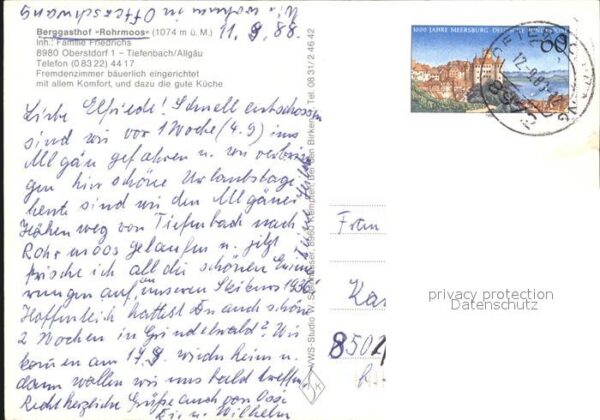 Wir wohnen in Ofterschwang
11.9.88.
Berggasthof »Rohrmoos« (1074 m ü. M.)
Inh.: Familie Friedrichs
8980 Oberstdorf 1 – Tiefenbach/Allgäu
Telefon (0 83 22) 44 17
Fremdenzimmer bäuerlich eingerichtet
mit allem Komfort, und dazu die gute Küche
Liebe Elfriede! Schnell entschlossen
sind wir vor 1 Woche (4.9) ins
Allgäu gefahren u. wir verbrin
gen hier schöne Urlaubstage.
heute sind wir den Allgäuer
Höhenweg von Tiefenbach nach
Rohrmoos gelaufen u. jetzt
frische ich all die schönen Erinne
rungen auf, an unseren Skikurs 1936
Hoffentlich hattest Du auch schöne
2 Wochen in Grindelwald? Wir
kommen am 17.9 wieder heim u.
dann wollen wir uns bald treffen
Recht herzliche Grüße auch von Ossi
u. Wilhelm
1000 JAHRE MEERSBURG DEUTSCHE BUNDESPOST
60
12.9.88
Frau
8501
privacy protection
Datenschutz